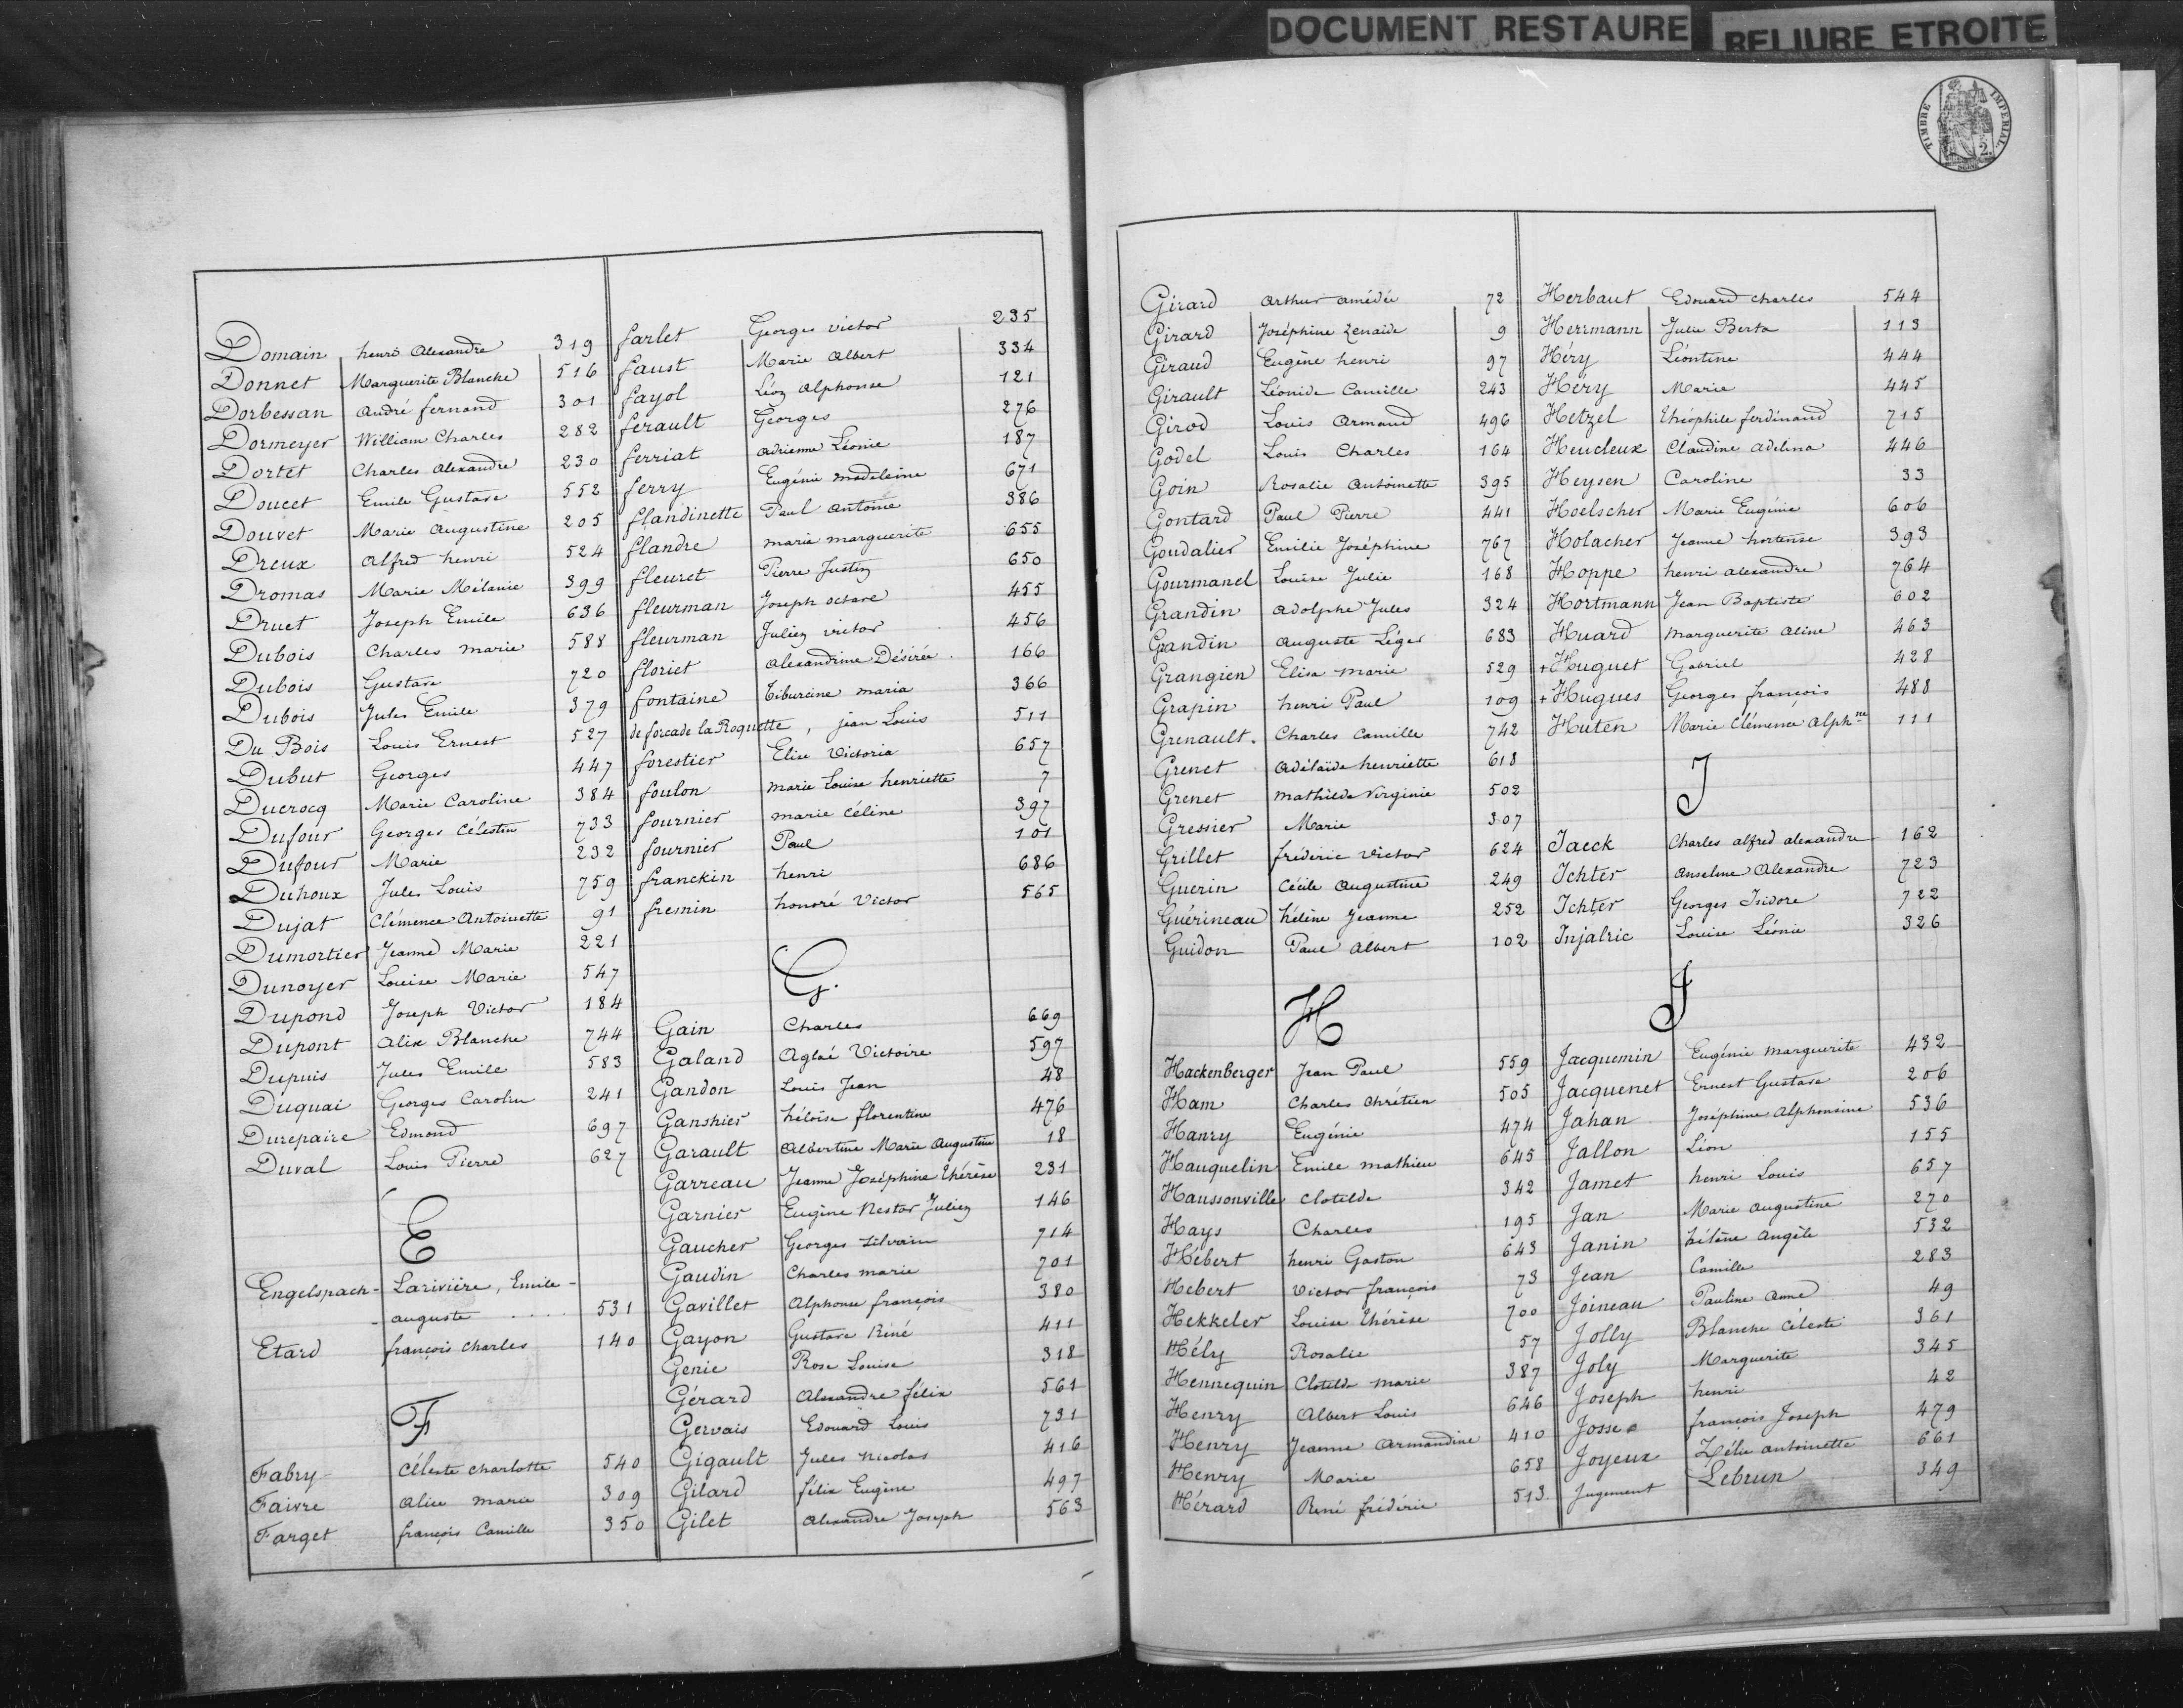 DOCUMENT RESTAURE
RELIURE ETROITE
TIMBRE IMPERIAL
2.
Domain henri Alexandre 319
Donnet Marguerite Blanche 516
Dorbessan André fernand 301
Dormeyer William Charles 282
Dortet Charles Alexandre 230
Doucet Emile Gustave 552
Douvet Marie Augustine 205
Dreux Alfred henri 524
Dromas Marie Mélanie 399
Druet Joseph Emile 636
Dubois Charles marie 588
Dubois Gustave 720
Dubois Jules Emile 379
Du Bois Louis Ernest 527
Dubut Georges 447
Ducrocq Marie Caroline 384
Dufour Georges Célestin 733
Dufour Marie 232
Duhoux Jules Louis 759
Dujat Clémence Antoinette 91
Dumortier Jeanne Marie 221
Dunoyer Louise Marie 547
Dupond Joseph Victor 184
Dupont Alix Blanche 744
Dupuis Jules Emile 583
Duquai Georges Carolin 241
Durepaire Edmond 697
Duval Louis Pierre 627
E
Engelspach- Larivière, Emile-
-auguste . . . . 531
Etard françois charles 140
F
Fabry Céleste charlotte 540
Faivre Alice marie 309
Farget françois Camille 350
farlet Georges victor 235
faust Marie Albert 334
fayol Léon Alphonse 121
ferault Georges 276
ferriat adrienne Léonie 187
ferry Eugénie madeleine 671
flandinette Paul antoine 386
flandre maria marguerite 655
fleuret Pierre Justin 650
fleurman Joseph octave 455
fleurman Julien victor 456
floriet Alexandrine Désirée 166
fontaine Tiburcine maria 366
de forcade la Roquette, jean Louis 511
forestier Elise Victoria 657
foulon marie Louise henriette 7
fournier marie Céline 397
fournier Paul 101
franckin henri 686
fremin honoré Victor 565
G.
Gain Charles 669
Galand Aglaé Victoire 597
Gandon Louis Jean 48
Ganshier héloïse florentine 476
Garault Albertine Marie Augustine 18
Garreau Jeanne Joséphine Thérèse 231
Garnier Eugène Nestor Julien 146
Gaucher Georges Silvain 714
Gaudin Charles marie 701
Gavillet Alphonse françois 380
Gayon Gustave Réné 411
Genie Rose Louise 318
Gérard Alexandre félix 561
Gervais Edouard Louis 731
Gigault Jules Nicolas 416
Gilard félix Eugène 497
Gilet Alexandre Joseph 563
Girard Arthur amédée 72
Girard Joséphine Zenaïde 9
Giraud Eugène henri 97
Girault Léonide Camille 243
Girod Louis Armand 496
Godel Louis Charles 164
Goin Rosalie Antoinette 395
Gontard Paul Pierre 441
Goudalier Emilie Joséphine 767
Gourmanel Louise Julie 168
Grandin adolphe Jules 324
Grandin auguste Léger 683
Grangien Elisa marie 529
Grapin henri Paul 109
Grenault. Charles Camille 742
Grenet Adélaïde henriette 618
Grenet mathilde Virginie 502
Gressier Marie 307
Grillet fréderic victor 624
Guerin Cécile Augustine 249
Guérineau hélène Jeanne 252
Guidon Paul Albert 102
H
Hackenberger Jean Paul 559
Ham Charles Chrétien 505
Hanry Eugénie 474
Hauquelin Emile mathieu 645
Haussonville Clotilde 342
Hays Charles 195
Hébert henri Gaston 643
Hebert victor françois 73
Hekkeler Louise Thérèse 700
Hély Rosalie 57
Hennequin Clotilde marie 387
Henry Albert Louis 646
Henry Jeanne Armandine 410
Henry Marie 658
Hérard René fréderic 513
Herbaut Edouard charles 544
Herrmann Julie Berta 113
Héry Léontine 444
Héry Marie 445
Hetzel Théophile ferdinand 715
Heucleux Claudine Adelina 446
Heysen Caroline 33
Hoelscher Marie Eugénie 606
Holacher Jeanne hortense 393
Hoppe henri alexandre 764
Hortmann Jean Baptiste 602
Huard marguerite aline 463
+ Huguet Gabriel 428
+ Hugues Georges françois 488
Huten Marie Clémence Alphne 111
I
Iaeck Charles alfred alexandre 162
Ichter anselme Alexandre 723
Ichter Georges Isidore 722
Injalric Louise Léonie 326
J
Jacquemin Eugénie marguerite 432
Jacquenet Ernest Gustave 206
Jahan Joséphine Alphonsine 536
Jallon Léon 155
Jamet henri Louis 657
Jan Marie augustine 270
Janin hélène angèle 532
Jean Camille 283
Joineau Pauline Anne 49
Jolly Blanche Céleste 361
Joly Marguerite 345
Joseph henri 42
Josse françois Joseph 479
Joyeux Zélie antoinette 661
Jugement Lebrun 349